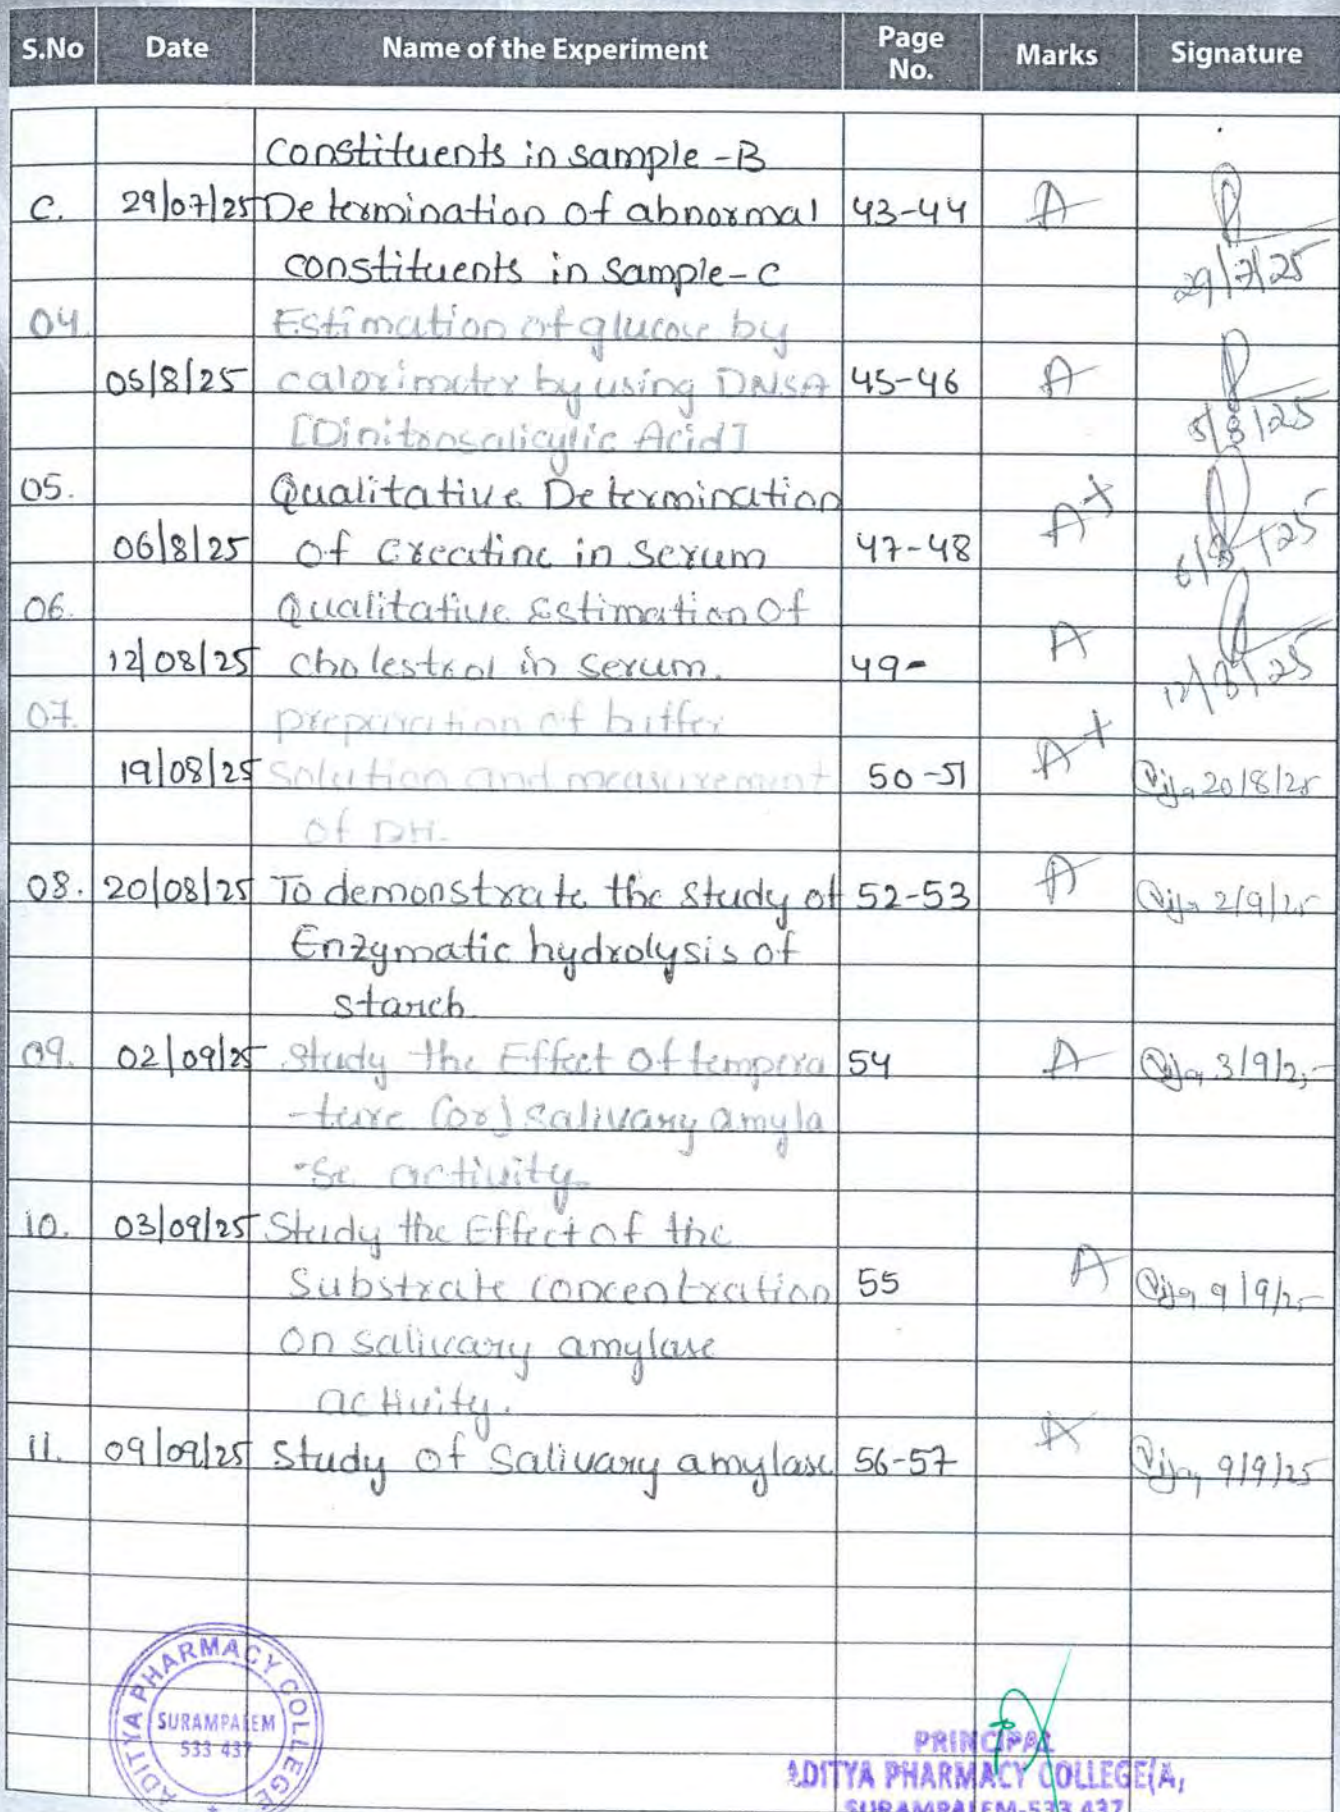 S.No Date Name of the Experiment Page No. Marks Signature
Constituents in sample -B
C. 29/07/25 Determination of abnormal 43-44 A
constituents in sample-C 29/7/25
04. Estimation of glucose by
05/8/25 calorimeter by using DNSA 45-46 A
[Dinitrosalicylic Acid] 5/8/25
05. Qualitative Determination
06/8/25 of creatine in serum 47-48 A+ 6/8/25
06. Qualitative Estimation of
12/08/25 cholestrol in serum. 49- A 12/8/25
07. preparation of buffer
19/08/25 solution and measurement 50-51 A+ 20/8/25
of PH.
08. 20/08/25 To demonstrate the study of 52-53 A 2/9/25
Enzymatic hydrolysis of
starch
09. 02/09/25 Study the Effect of tempera 54 A 3/9/25
-ture (or) salivary amyla
-se activity.
10. 03/09/25 Study the Effect of the
Substrate concentration 55 A 9/9/25
on salivary amylase
activity.
11. 09/09/25 Study of Salivary amylase 56-57 A 9/9/25
ADITYA PHARMACY COLLEGE
SURAMPALEM
533 437
PRINCIPAL
ADITYA PHARMACY COLLEGE(A,
SURAMPALEM-533 437